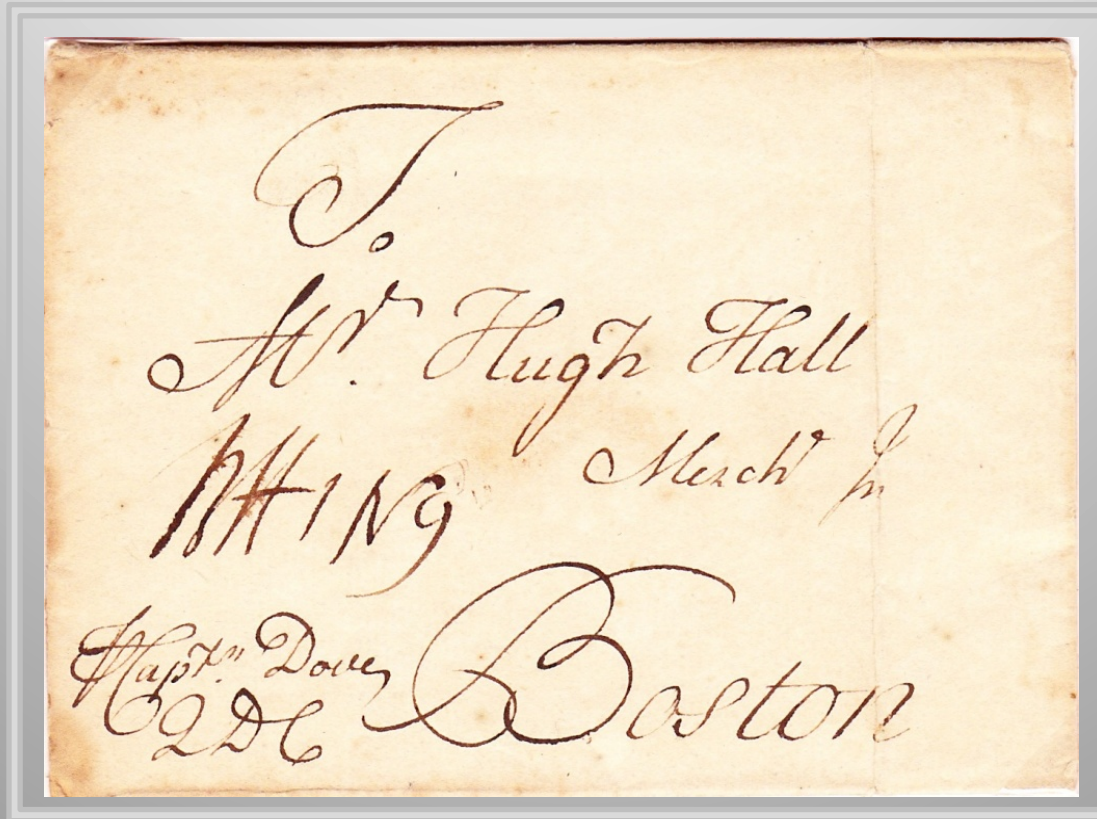 To
Mr. Hugh Hall
Mercht In
1 N 9
Boston
Captn. Dove
QDC